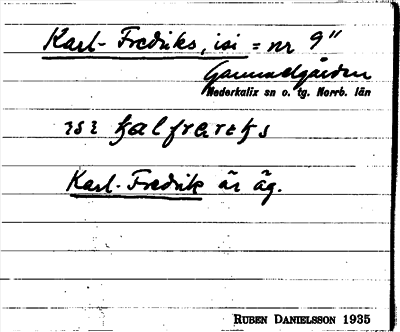 Karl-Fredriks, isi = nr 9"
Gammelgården
Nederkalix sn o. tg. Norrb. län
Karl-Fredrik är äg.
RUBEN DANIELSSON 1935